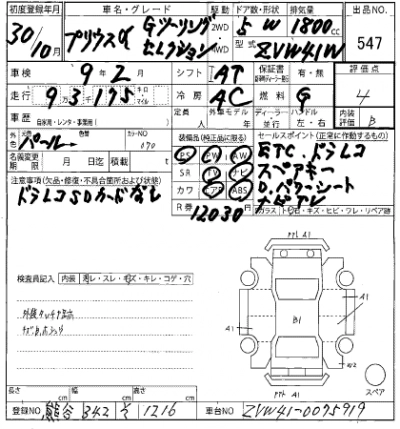 初度登録年月 車名・グレード 駆動 ドア数・形状 排気量 出品NO
30/10月 プリウスα Gツーリングセレクション 2WD 4WD 5 W 1800cc ZVW41W 547
車検 9年2月 シフト AT 有・無 評価点
走行 93,175 km マイル 冷房 AC 燃料 G 4
車歴 自家用・レンタ・事業用( ) 定員 人 外車モデル 年 ディーラー ハンドル 左・右 内装評価 B
外色 パール 色替 カラーNO 070 装備品(純正品に限る) セールスポイント(正常に作動するもの)
名義変更期限 月 日迄 積載 t PS PW AW ETC.ドラレコ
注意事項(欠品・修復・不具合箇所および状態) SR TV ナビ スペアキー
ドラレコSDカードなし カワ エアB ABS D.パワーシート
R券 12030 ナビTV
ガラス トビ石・キズ・ヒビ・ワレ・リペア跡
検査員記入 内装 汚レ・スレ・キズ・キレ・コゲ・穴
アトリ A1
A1
A1 B1
A1 W2
アトリ A1
スペア
長さ cm 幅 cm 高さ cm
登録NO 熊谷 342 そ 1216 車台NO ZVW41-0075919